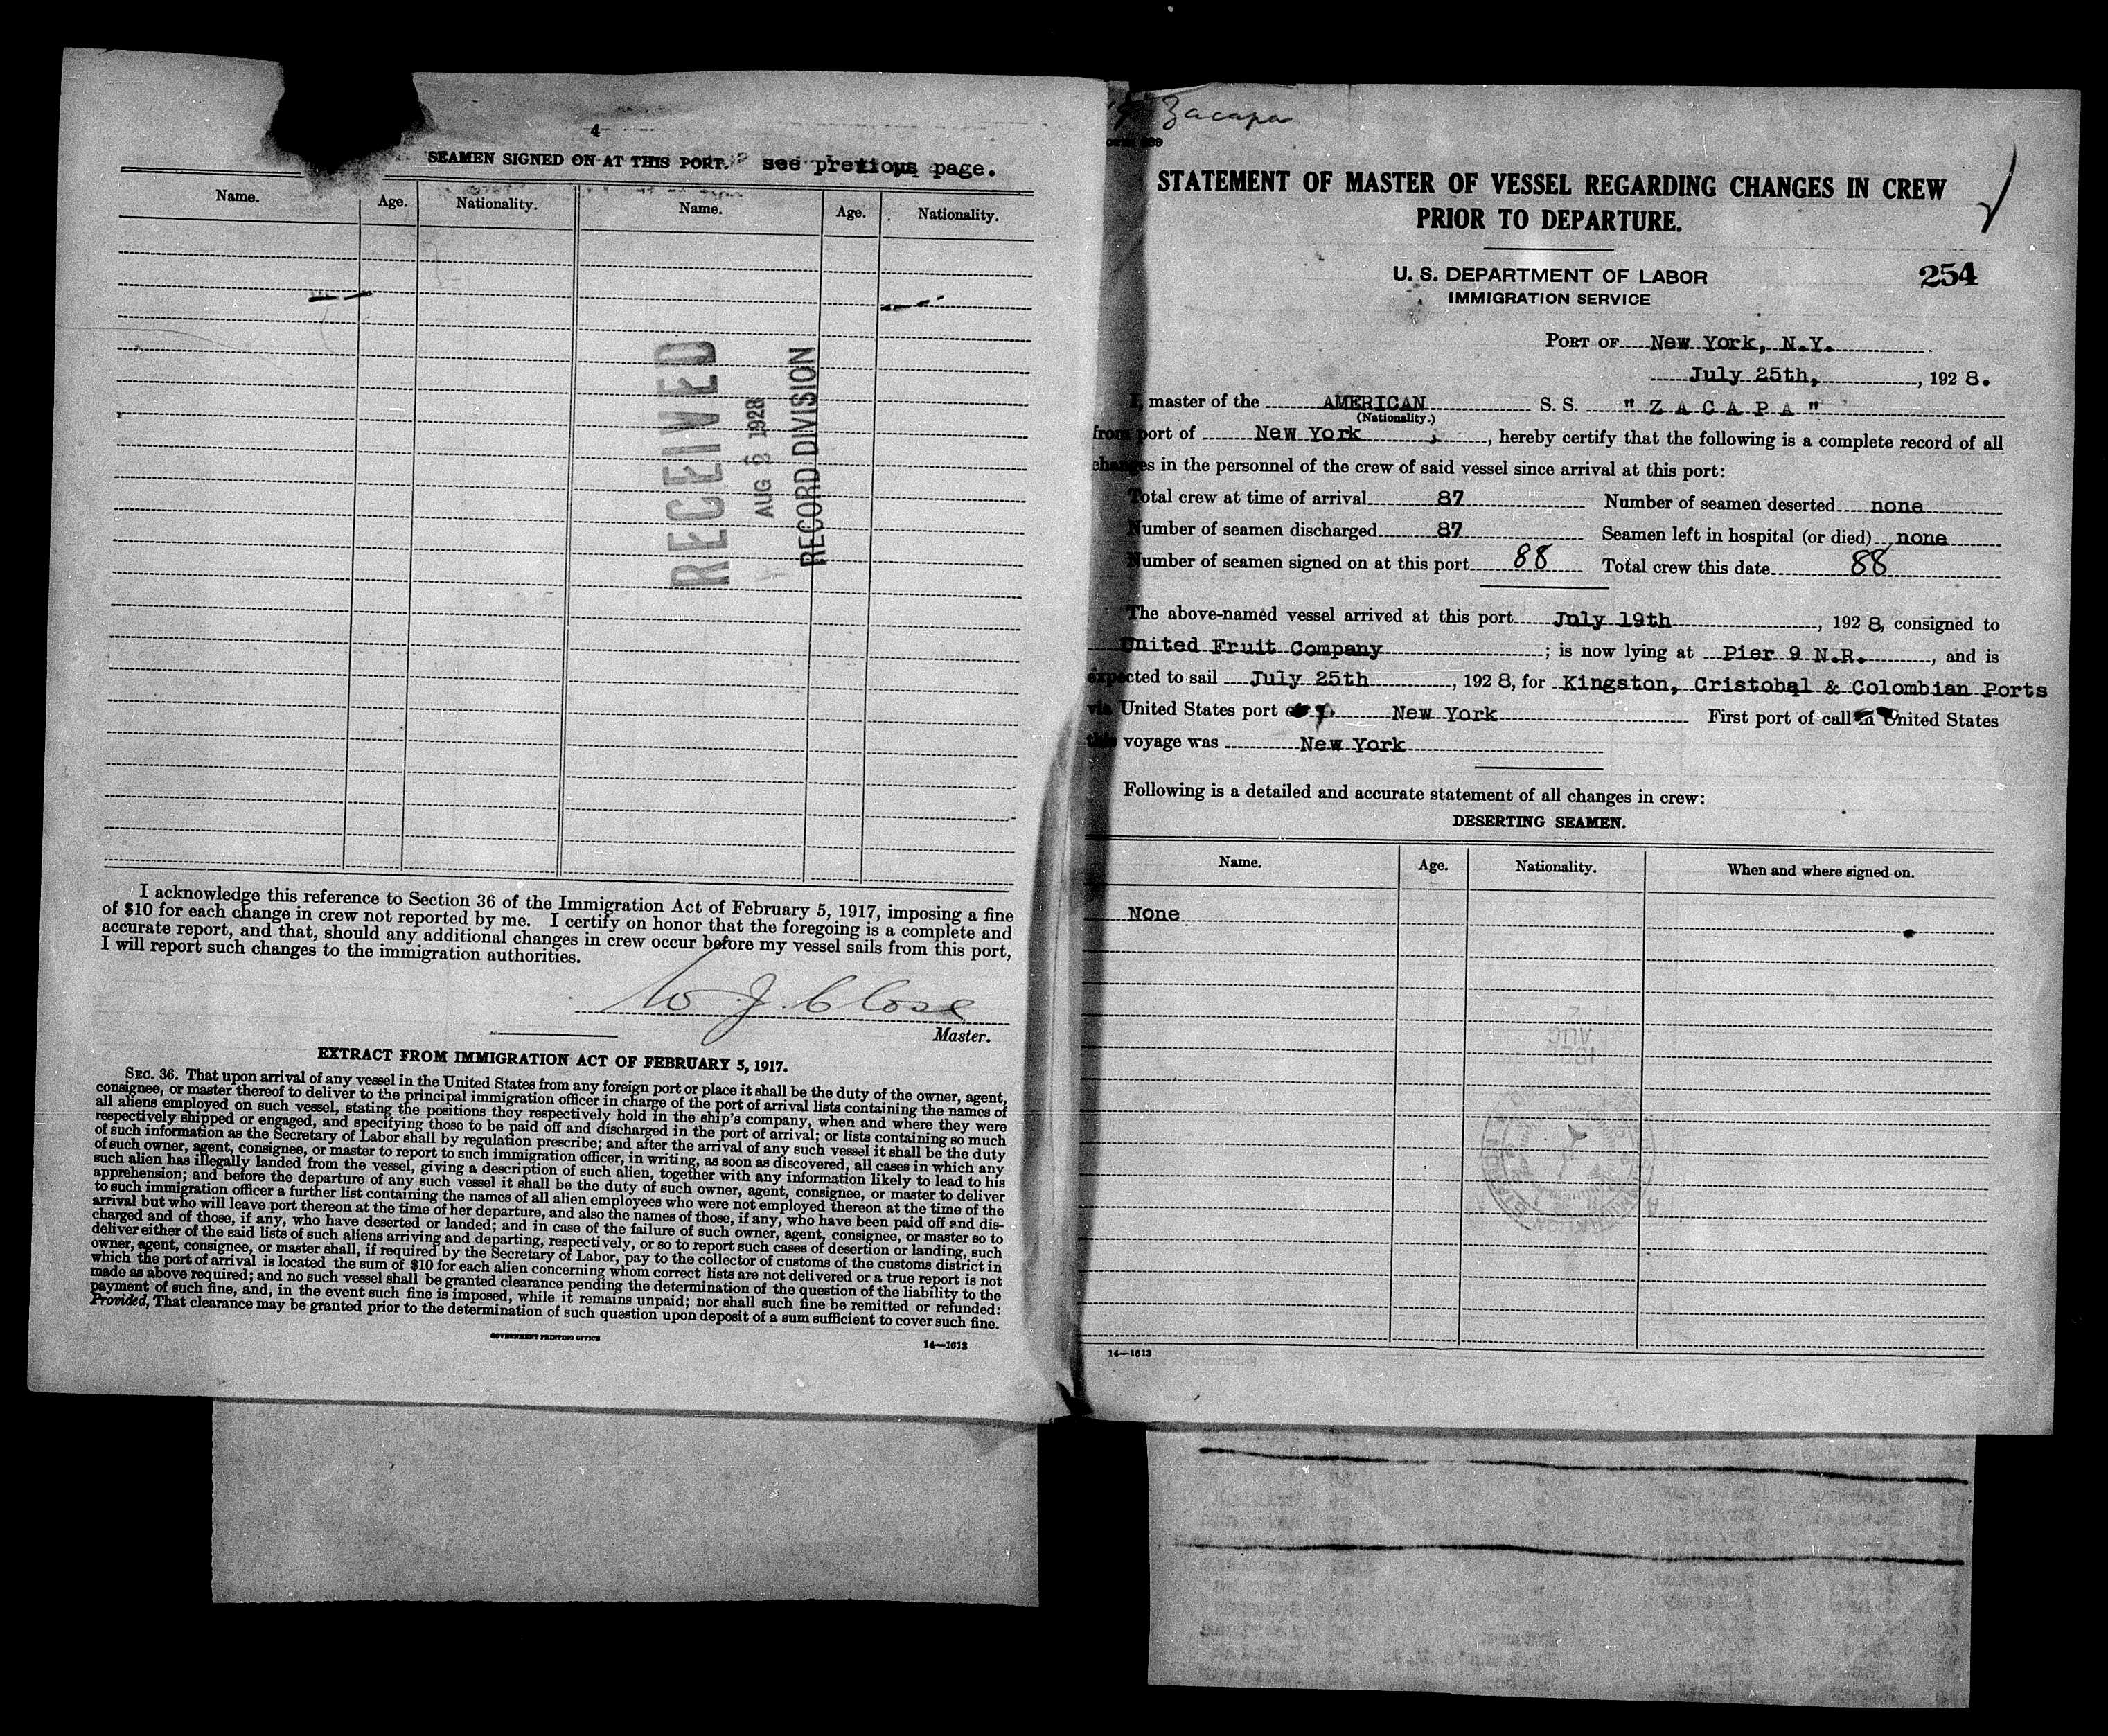 4
SEAMEN SIGNED ON AT THIS PORT. see previous page.
Name. Age. Nationality. Name. Age. Nationality.
RECEIVED
AUG 1928
RECORD DIVISION
I acknowledge this reference to Section 36 of the Immigration Act of February 5, 1917, imposing a fine
of $10 for each change in crew not reported by me. I certify on honor that the foregoing is a complete and
accurate report, and that, should any additional changes in crew occur before my vessel sails from this port,
I will report such changes to the immigration authorities.
W. J. Close
Master.
EXTRACT FROM IMMIGRATION ACT OF FEBRUARY 5, 1917.
SEC. 36. That upon arrival of any vessel in the United States from any foreign port or place it shall be the duty of the owner, agent,
consignee, or master thereof to deliver to the principal immigration officer in charge of the port of arrival lists containing the names of
all aliens employed on such vessel, stating the positions they respectively hold in the ship's company, when and where they were
respectively shipped or engaged, and specifying those to be paid off and discharged in the port of arrival; or lists containing so much
of such information as the Secretary of Labor shall by regulation prescribe; and after the arrival of any such vessel it shall be the duty
of such owner, agent, consignee, or master to report to such immigration officer, in writing, as soon as discovered, all cases in which any
such alien has illegally landed from the vessel, giving a description of such alien, together with any information likely to lead to his
apprehension; and before the departure of any such vessel it shall be the duty of such owner, agent, consignee, or master to deliver
to such immigration officer a further list containing the names of all alien employees who were not employed thereon at the time of the
arrival but who will leave port thereon at the time of her departure, and also the names of those, if any, who have been paid off and dis-
charged and of those, if any, who have deserted or landed; and in case of the failure of such owner, agent, consignee, or master so to
deliver either of the said lists of such aliens arriving and departing, respectively, or so to report such cases of desertion or landing, such
owner, agent, consignee, or master shall, if required by the Secretary of Labor, pay to the collector of customs of the customs district in
which the port of arrival is located the sum of $10 for each alien concerning whom correct lists are not delivered or a true report is not
made as above required; and no such vessel shall be granted clearance pending the determination of the question of the liability to the
payment of such fine, and, in the event such fine is imposed, while it remains unpaid; nor shall such fine be remitted or refunded:
Provided, That clearance may be granted prior to the determination of such question upon deposit of a sum sufficient to cover such fine.
GOVERNMENT PRINTING OFFICE
14—1613
Zacapa
STATEMENT OF MASTER OF VESSEL REGARDING CHANGES IN CREW
PRIOR TO DEPARTURE.
U. S. DEPARTMENT OF LABOR
IMMIGRATION SERVICE
254
PORT OF New York, N.Y.
July 25th, , 1928.
I, master of the AMERICAN S. S. "ZACAPA"
(Nationality.)
from port of New York , hereby certify that the following is a complete record of all
changes in the personnel of the crew of said vessel since arrival at this port:
Total crew at time of arrival 87 Number of seamen deserted none
Number of seamen discharged 87 Seamen left in hospital (or died) none
Number of seamen signed on at this port 88 Total crew this date 88
The above-named vessel arrived at this port July 19th , 1928, consigned to
United Fruit Company ; is now lying at Pier 9 N.R. , and is
expected to sail July 25th , 1928, for Kingston, Cristobal & Colombian Ports
via United States port New York First port of call in United States
this voyage was New York
Following is a detailed and accurate statement of all changes in crew:
DESERTING SEAMEN.
Name. Age. Nationality. When and where signed on.
None
14—1613